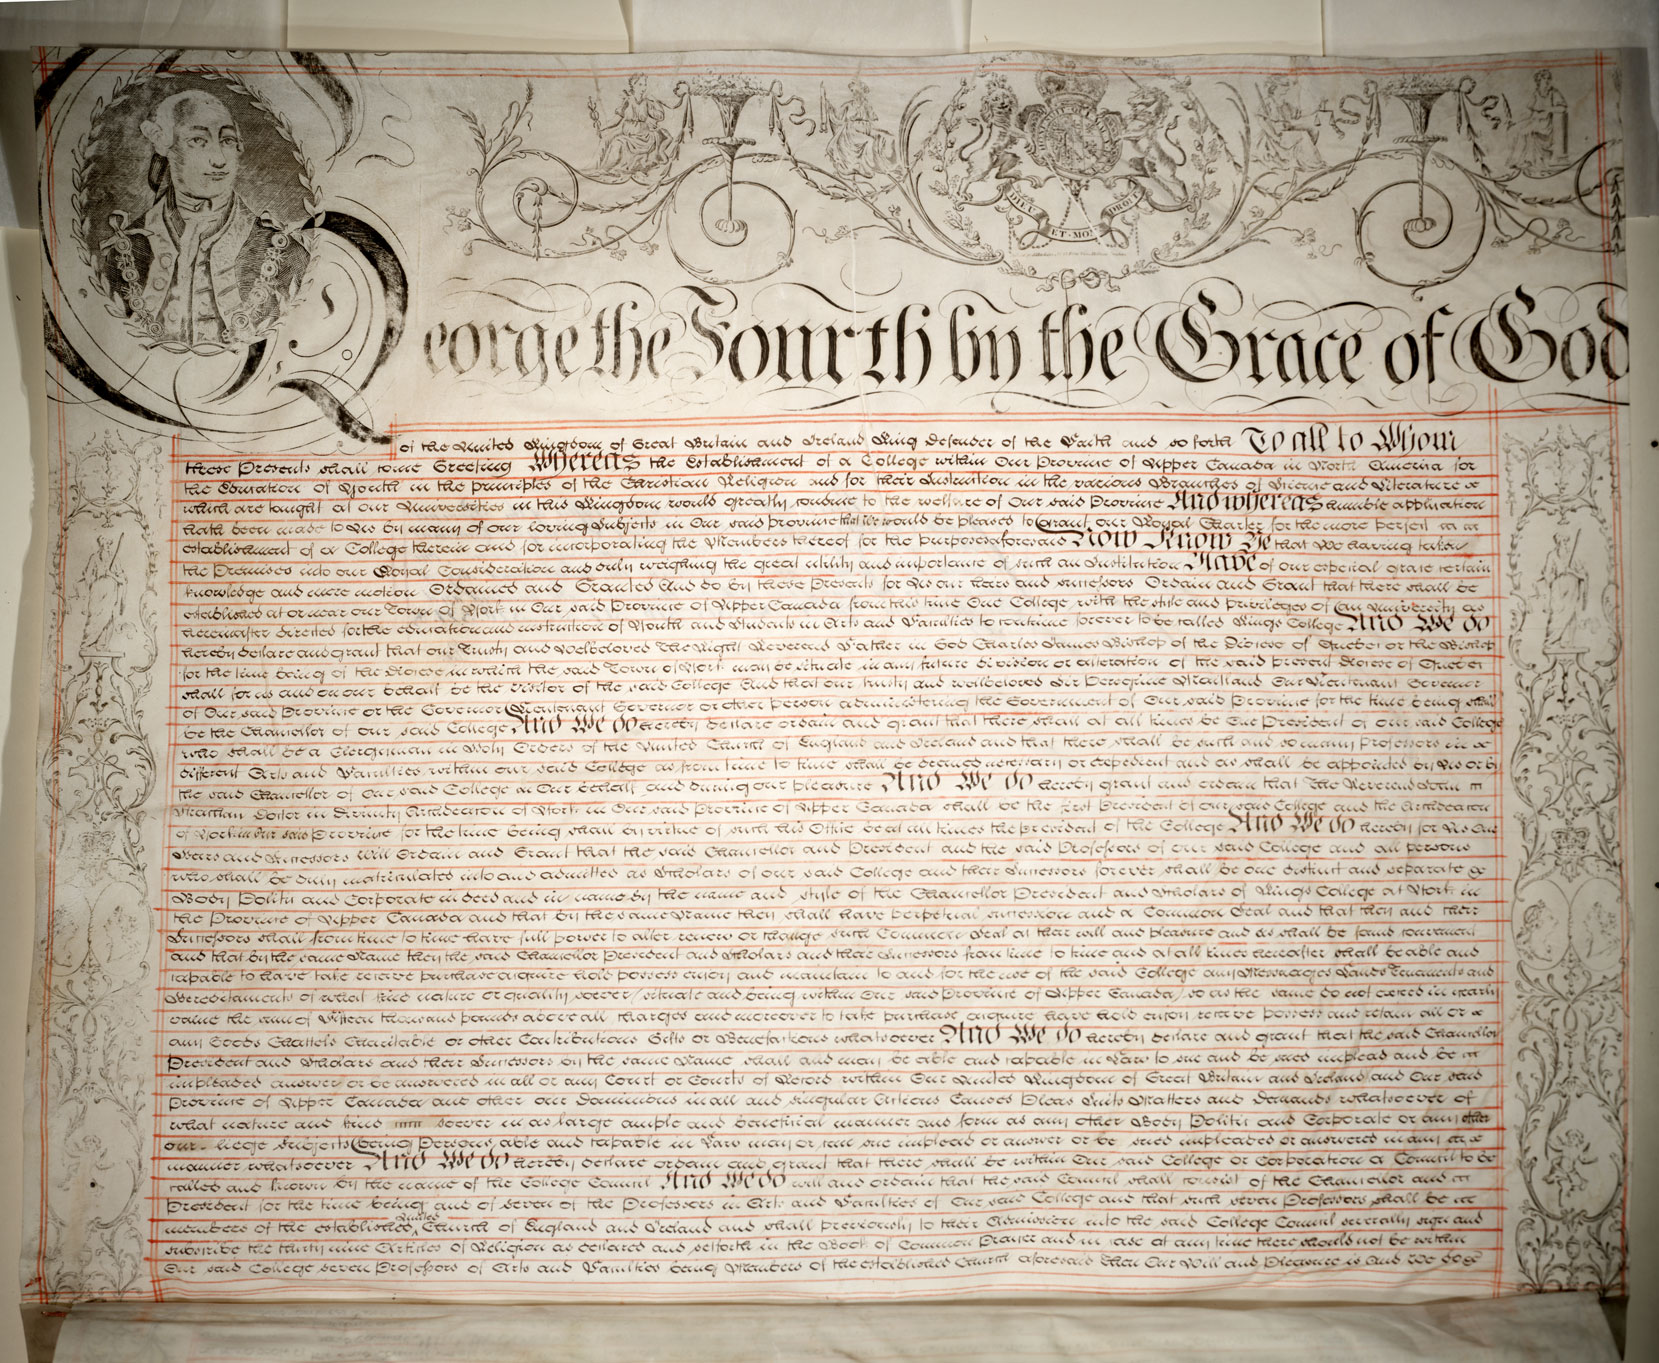 DIEU ET·MON DROIT
George the Fourth by the Grace of God
of the United Kingdom of Great Britain and Ireland King Defender of the Faith and so forth To all to Whom
these Presents shall come Greeting Whereas the Establishment of a College within Our Province of Upper Canada in North America for
the Education of Youth in the principles of the Christian Religion and for their Instruction in the various Branches of Science and Literature
which are taught at our Universities in this Kingdom would greatly conduce to the welfare of Our said Province And whereas humble application
hath been made to Us by many of our loving Subjects in Our said province that We would be pleased to Grant our Royal Charter for the more perfect
establishment of a College therein and for incorporating the Members thereof for the purposes aforesaid Now Know Ye that We having taken
the Premises into our Royal Consideration and duly weighing the great utility and importance of such an Institution Have of our especial grace certain
knowledge and mere motion Ordained and Granted And do by these Presents for Us our heirs and successors Ordain and Grant that there shall be
established at or near our Town of York in Our said Province of Upper Canada from this time One College with the style and privileges of an University as
hereinafter directed for the education and instruction of Youth and Students in Arts and Faculties to continue forever to be called Kings College And We do
hereby declare and grant that our Trusty and Welbeloved The Right Reverend Father in God Charles James Bishop of the Diocese of Quebec or the Bishop
for the time being of the Diocese in which the said Town of York may be situate in any future division or alteration of the said present Diocese of Quebec
shall for us and on our behalf be the visitor of the said College And that our trusty and wellbeloved Sir Peregrine Maitland Our Lieutenant Governor
of Our said Province or the Governor Lieutenant Governor or other person administering the Government of Our said Province for the time being shall
be the Chancellor of our said College And We do hereby declare ordain and grant that there shall at all times be One President of our said College
who shall be a Clergyman in Holy Orders of the United Church of England and Ireland and that there shall be such and so many Professors in
different Arts and Faculties within our said College as from time to time shall be deemed necessary or expedient and as shall be appointed by Us or by
the said Chancellor of Our said College in Our behalf and during our pleasure And We do hereby grant and ordain that The Reverend John
Strachan Doctor in Divinity Archdeacon of York in Our said Province of Upper Canada shall be the first President of our said College and the Archdeacon
of York in Our said Province for the time being shall by virtue of such his Office be at all times the president of the College And We do hereby for Us Our
Heirs and Successors Will Ordain and Grant that the said Chancellor and President and the said Professors of our said College and all persons
who shall be duly matriculated into and admitted as Scholars of our said College and their Successors forever shall be one distinct and separate
Body Politic and Corporate in deed and in name by the name and style of the Chancellor President and Scholars of Kings College at York in
the Province of Upper Canada and that by the same Name they shall have perpetual succession and a Common Seal and that they and their
Successors shall from time to time have full power to alter renew or change such Common Seal at their will and pleasure and as shall be found convenient
and that by the same Name they the said Chancellor President and Scholars and their Successors from time to time and at all times hereafter shall be able and
capable to have take receive purchase acquire hold possess enjoy and maintain to and for the use of the said College any Messuages Lands Tenements and
Hereditaments of what kind nature or quality soever situate and being within Our said Province of Upper Canada so as the same do not exceed in yearly
value the sum of Fifteen thousand pounds above all charges and moreover to take purchase acquire have hold enjoy receive possess and retain all or
any Goods Chattels Charitable or other Contributions Gifts or Benefactions whatsoever And We do hereby declare and grant that the said Chancellor
President and Scholars and their Successors by the same Name shall and may be able and capable in Law to sue and be sued implead and be
impleaded answer or be answered in all or any Court or Courts of Record within Our United Kingdom of Great Britain and Ireland and Our said
Province of Upper Canada and other our Dominions in all and singular Actions Causes Pleas Suits Matters and Demands whatsoever of
what nature and kind soever in as large ample and beneficial manner and form as any other Body Politic and Corporate or any other
our liege Subjects being Persons able and capable in Law may or can sue implead or answer or be sued impleaded or answered in any
manner whatsoever And We do hereby declare ordain and grant that there shall be within Our said College or Corporation a Council to be
called and known by the name of the College Council And We do will and ordain that the said Council shall consist of the Chancellor and
President for the time being and of seven of the Professors in Arts and Faculties of Our said College and that such seven Professors shall be
members of the established United Church of England and Ireland and shall previously to their Admission into the said College Council severally sign and
subscribe the thirty nine Articles of Religion as declared and setforth in the Book of Common Prayer and in case at any time there should not be within
Our said College seven Professors of Arts and Faculties being Members of the established Church aforesaid then Our Will and Pleasure is And We do